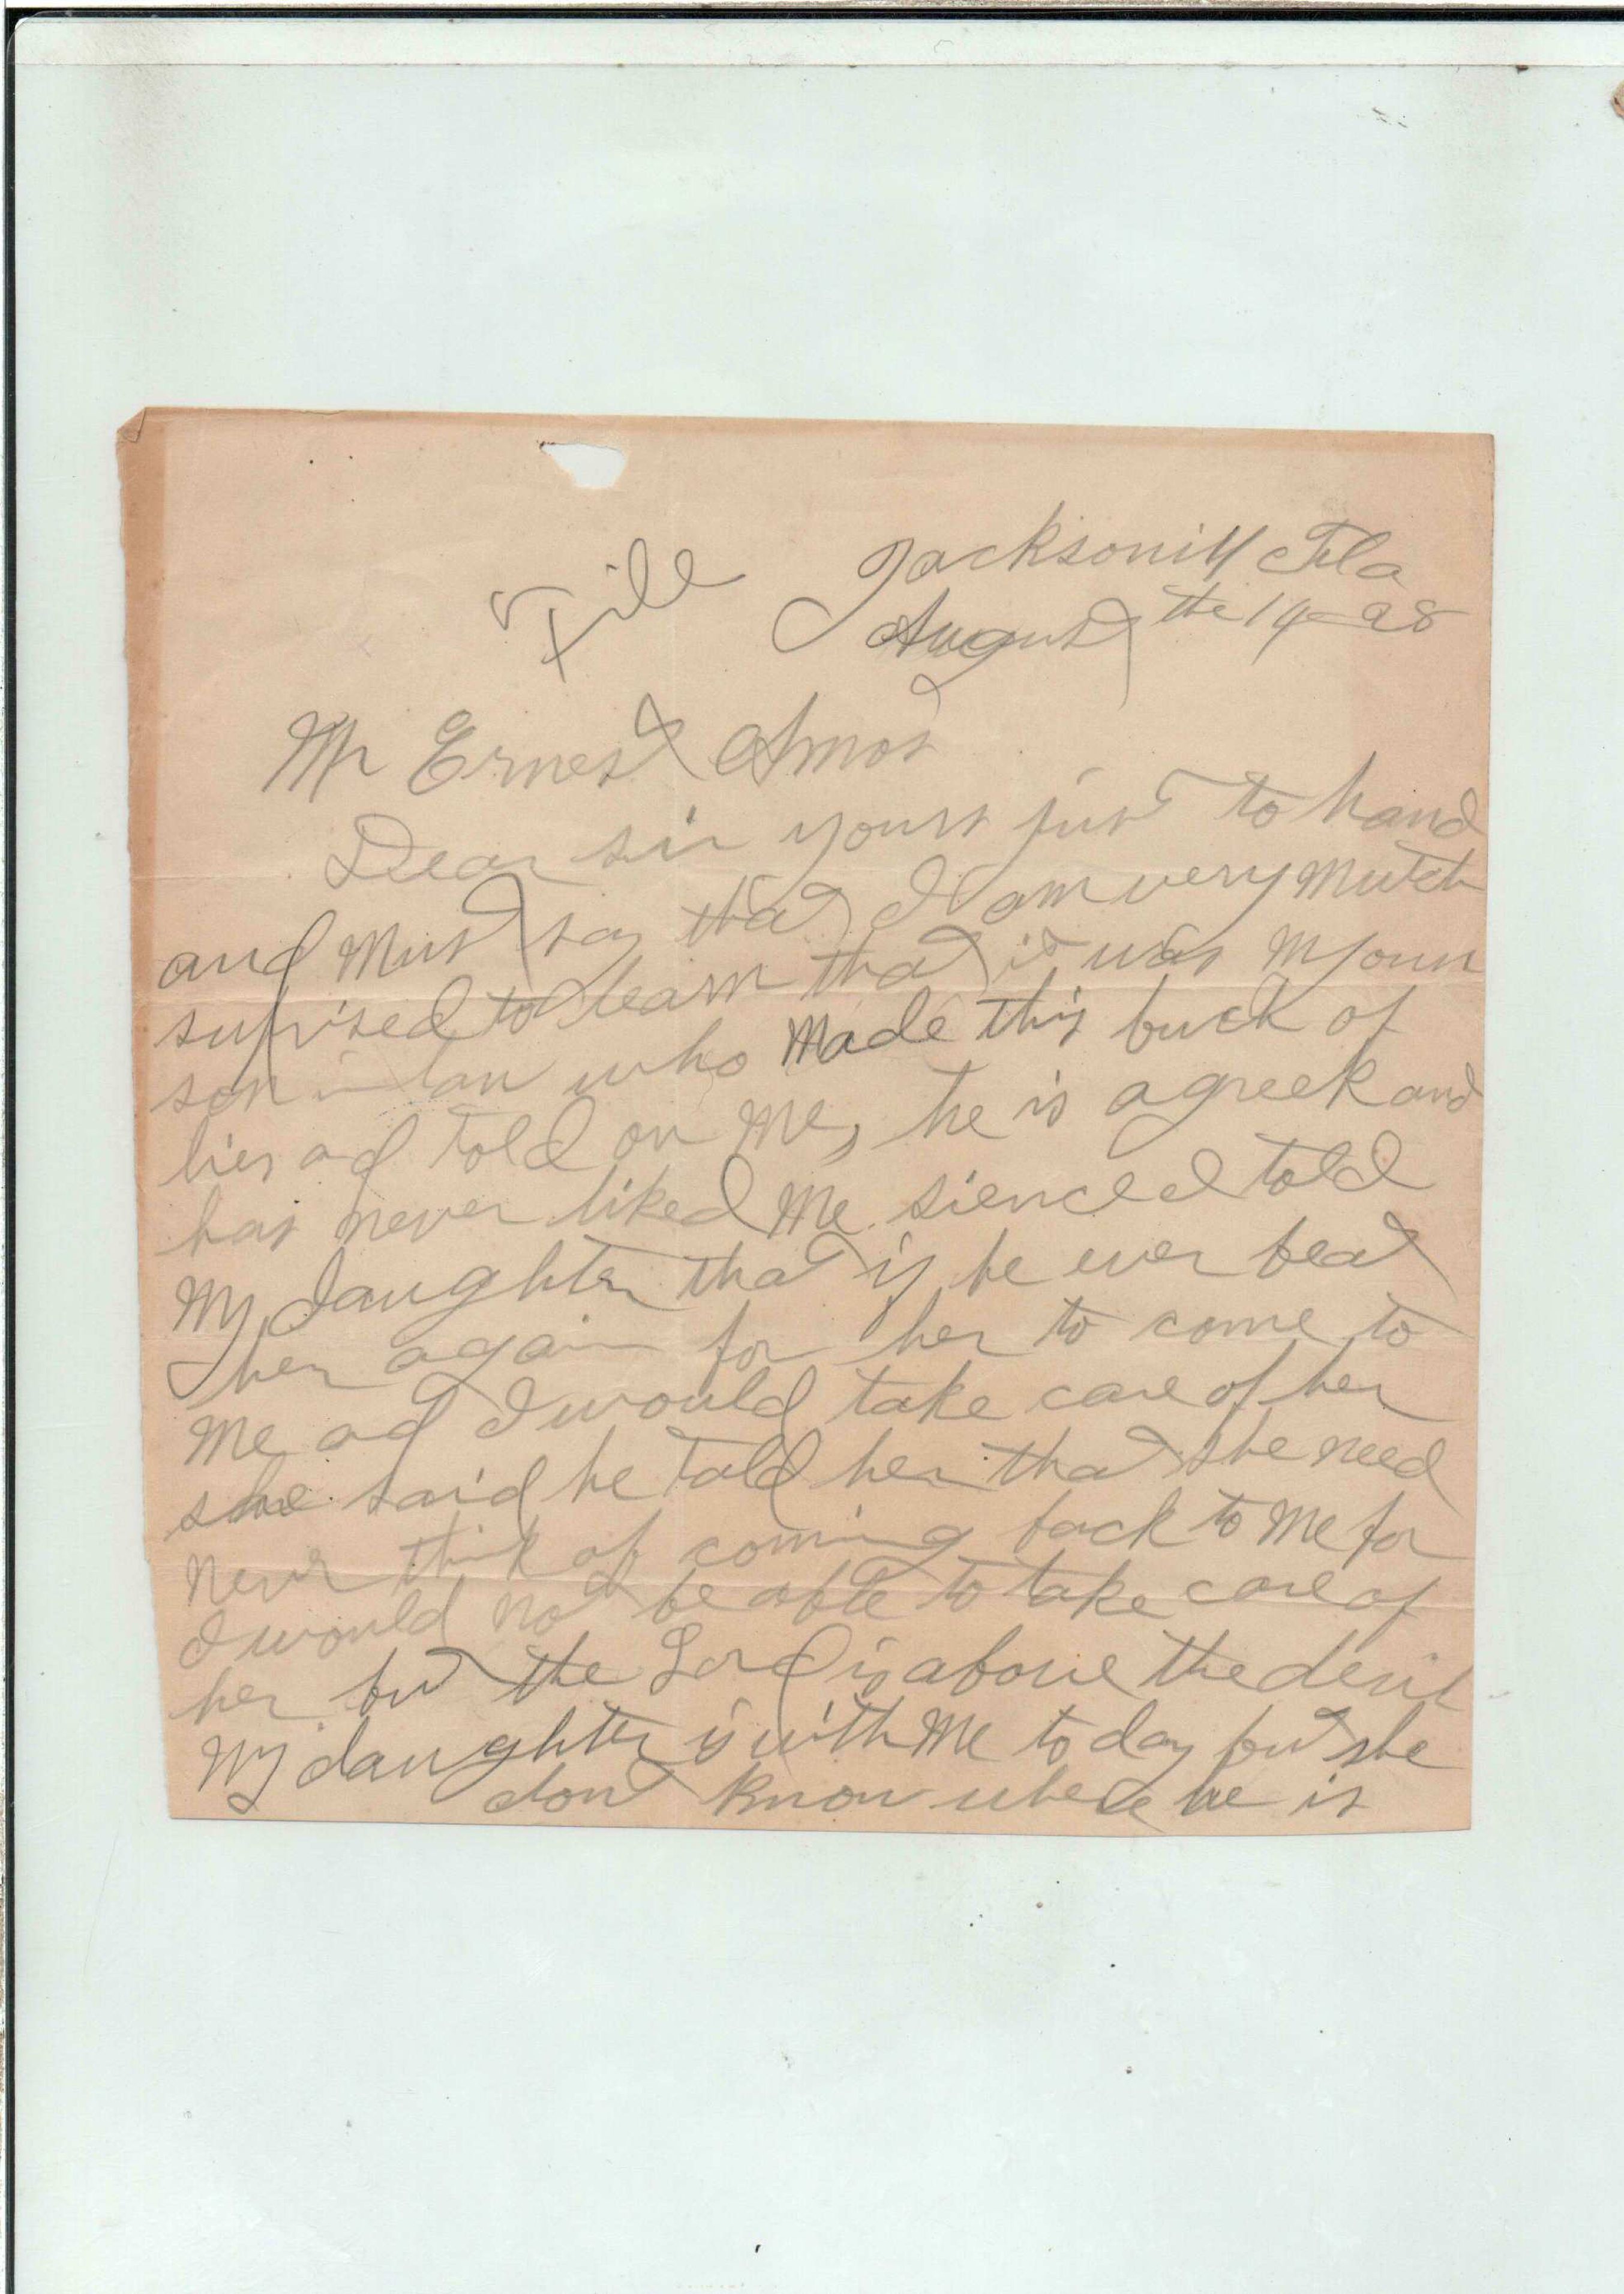 File
Jacksonill Fla
August the 14-28
Mr Ernest Amos
Dear sir yours just to hand
and Must say that I am very Mutch
suprised to learn that it was My own
son in law who Made this buck of
lies ad told on Me, he is a greek and
has never liked Me sience I told
My daughter that if he ever beat
her again for her to come to
Me ad I would take care of her
she said he told her that she need
never think of coming back to Me for
I would not be able to take care of
her but the Lord is above the devil
My daughter is with Me to day but she
dont know where he is